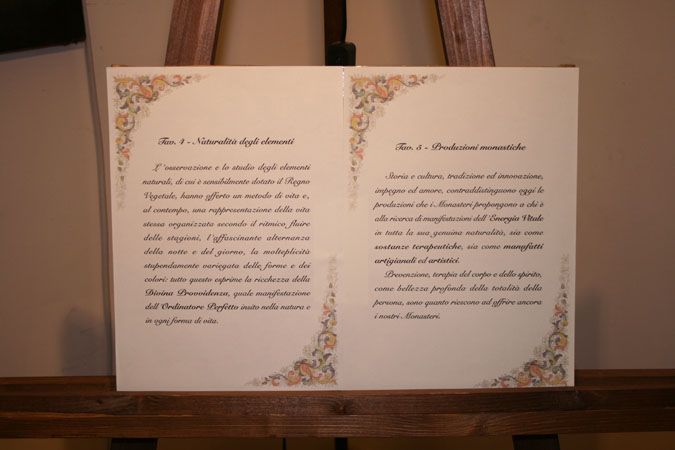 Tav. 4 - Naturalità degli elementi
L'osservazione e lo studio degli elementi
naturali, di cui è sensibilmente dotato il Regno
Vegetale, hanno offerto un metodo di vita e,
al contempo, una rappresentazione della vita
stessa organizzata secondo il ritmico fluire
delle stagioni, l'affascinante alternanza
della notte e del giorno, la molteplicità
stupendamente variegata delle forme e dei
colori: tutto questo esprime la ricchezza della
Divina Provvidenza, quale manifestazione
dell'Ordinatore Perfetto insito nella natura e
in ogni forma di vita.
Tav. 5 - Produzioni monastiche
Storia e cultura, tradizione ed innovazione,
impegno ed amore, contraddistinguono oggi le
produzioni che i Monasteri propongono a chi è
alla ricerca di manifestazioni dell'Energia Vitale
in tutta la sua genuina naturalità, sia come
sostanze terapeutiche, sia come manufatti
artigianali ed artistici.
Prevenzione, terapia del corpo e dello spirito,
come bellezza profonda della totalità della
persona, sono quanto riescono ad offrire ancora
i nostri Monasteri.